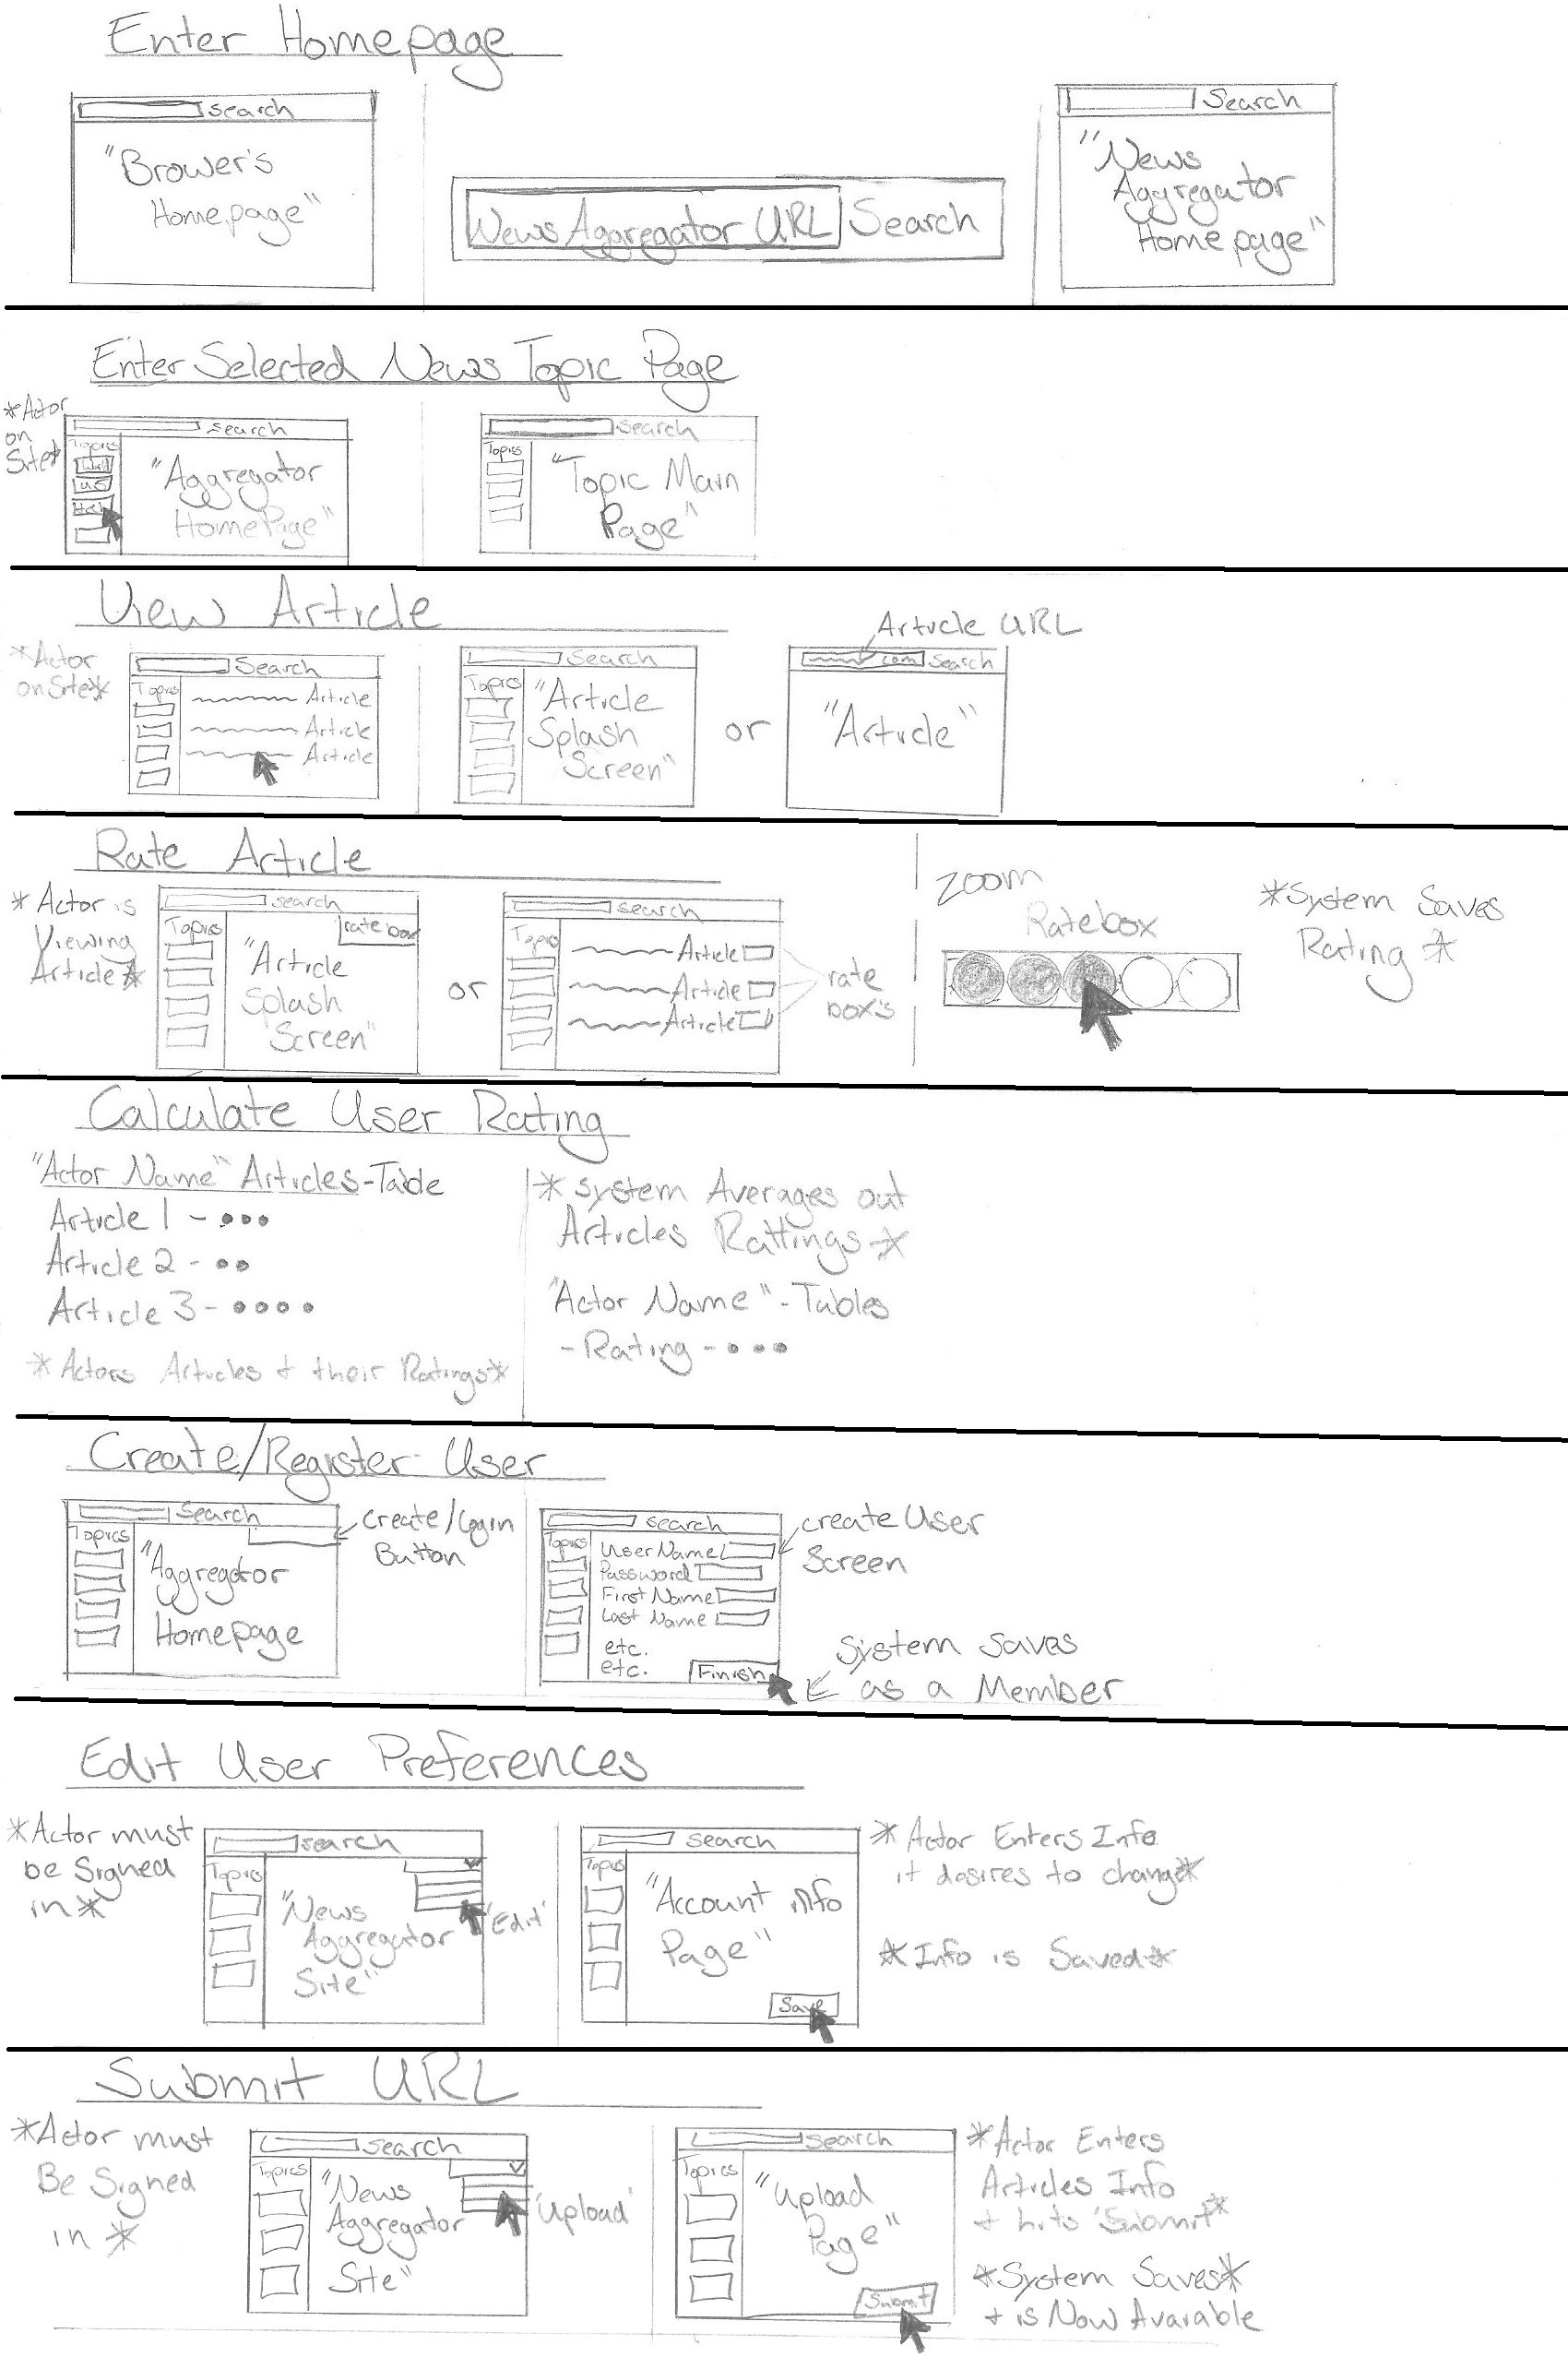 Enter Homepage
Search
"Brower's
Homepage"
News Aggregator URL Search
Search
"News
Aggregator
Homepage"
Enter Selected News Topic Page
*Actor
on
Site*
Search
Topics
US
"Aggregator
HomePage"
Search
Topics
"Topic Main
Page"
View Article
*Actor
on Site*
Search
Topics
Article
Article
Article
Search
Topics
"Article
Splash
Screen"
or
Article URL
.com Search
"Article"
Rate Article
* Actor is
Viewing
Article *
search
Topics
rate box
"Article
Splash
Screen"
or
search
Topics
Article
Article
Article
rate
box's
zoom
Ratebox
*System Saves
Rating *
Calculate User Rating
"Actor Name" Articles-Table
Article 1 - •••
Article 2 - ••
Article 3 - ••••
* Actors Articles + their Ratings*
* System Averages out
Articles Rattings *
"Actor Name" - Tables
- Rating - •••
Create/Register User
Search
Topics
"Aggregator
Homepage
create/login
Button
search
Topics
UserName
Password
First Name
Last Name
etc.
etc.
Finish
create User
Screen
System Saves
as a Member
Edit User Preferences
*Actor must
be Signed
in *
search
Topics
"News
Aggregator
Site"
'Edit'
search
Topics
"Account info
Page"
Save
* Actor Enters Info
it desires to change*
* Info is Saved *
Submit URL
*Actor must
Be Signed
in *
Search
Topics
"News
Aggregator
Site"
'Upload'
search
Topics
"Upload
Page"
Submit
*Actor Enters
Articles Info
+ hits 'Submit'*
*System Saves*
+ is Now Avariable